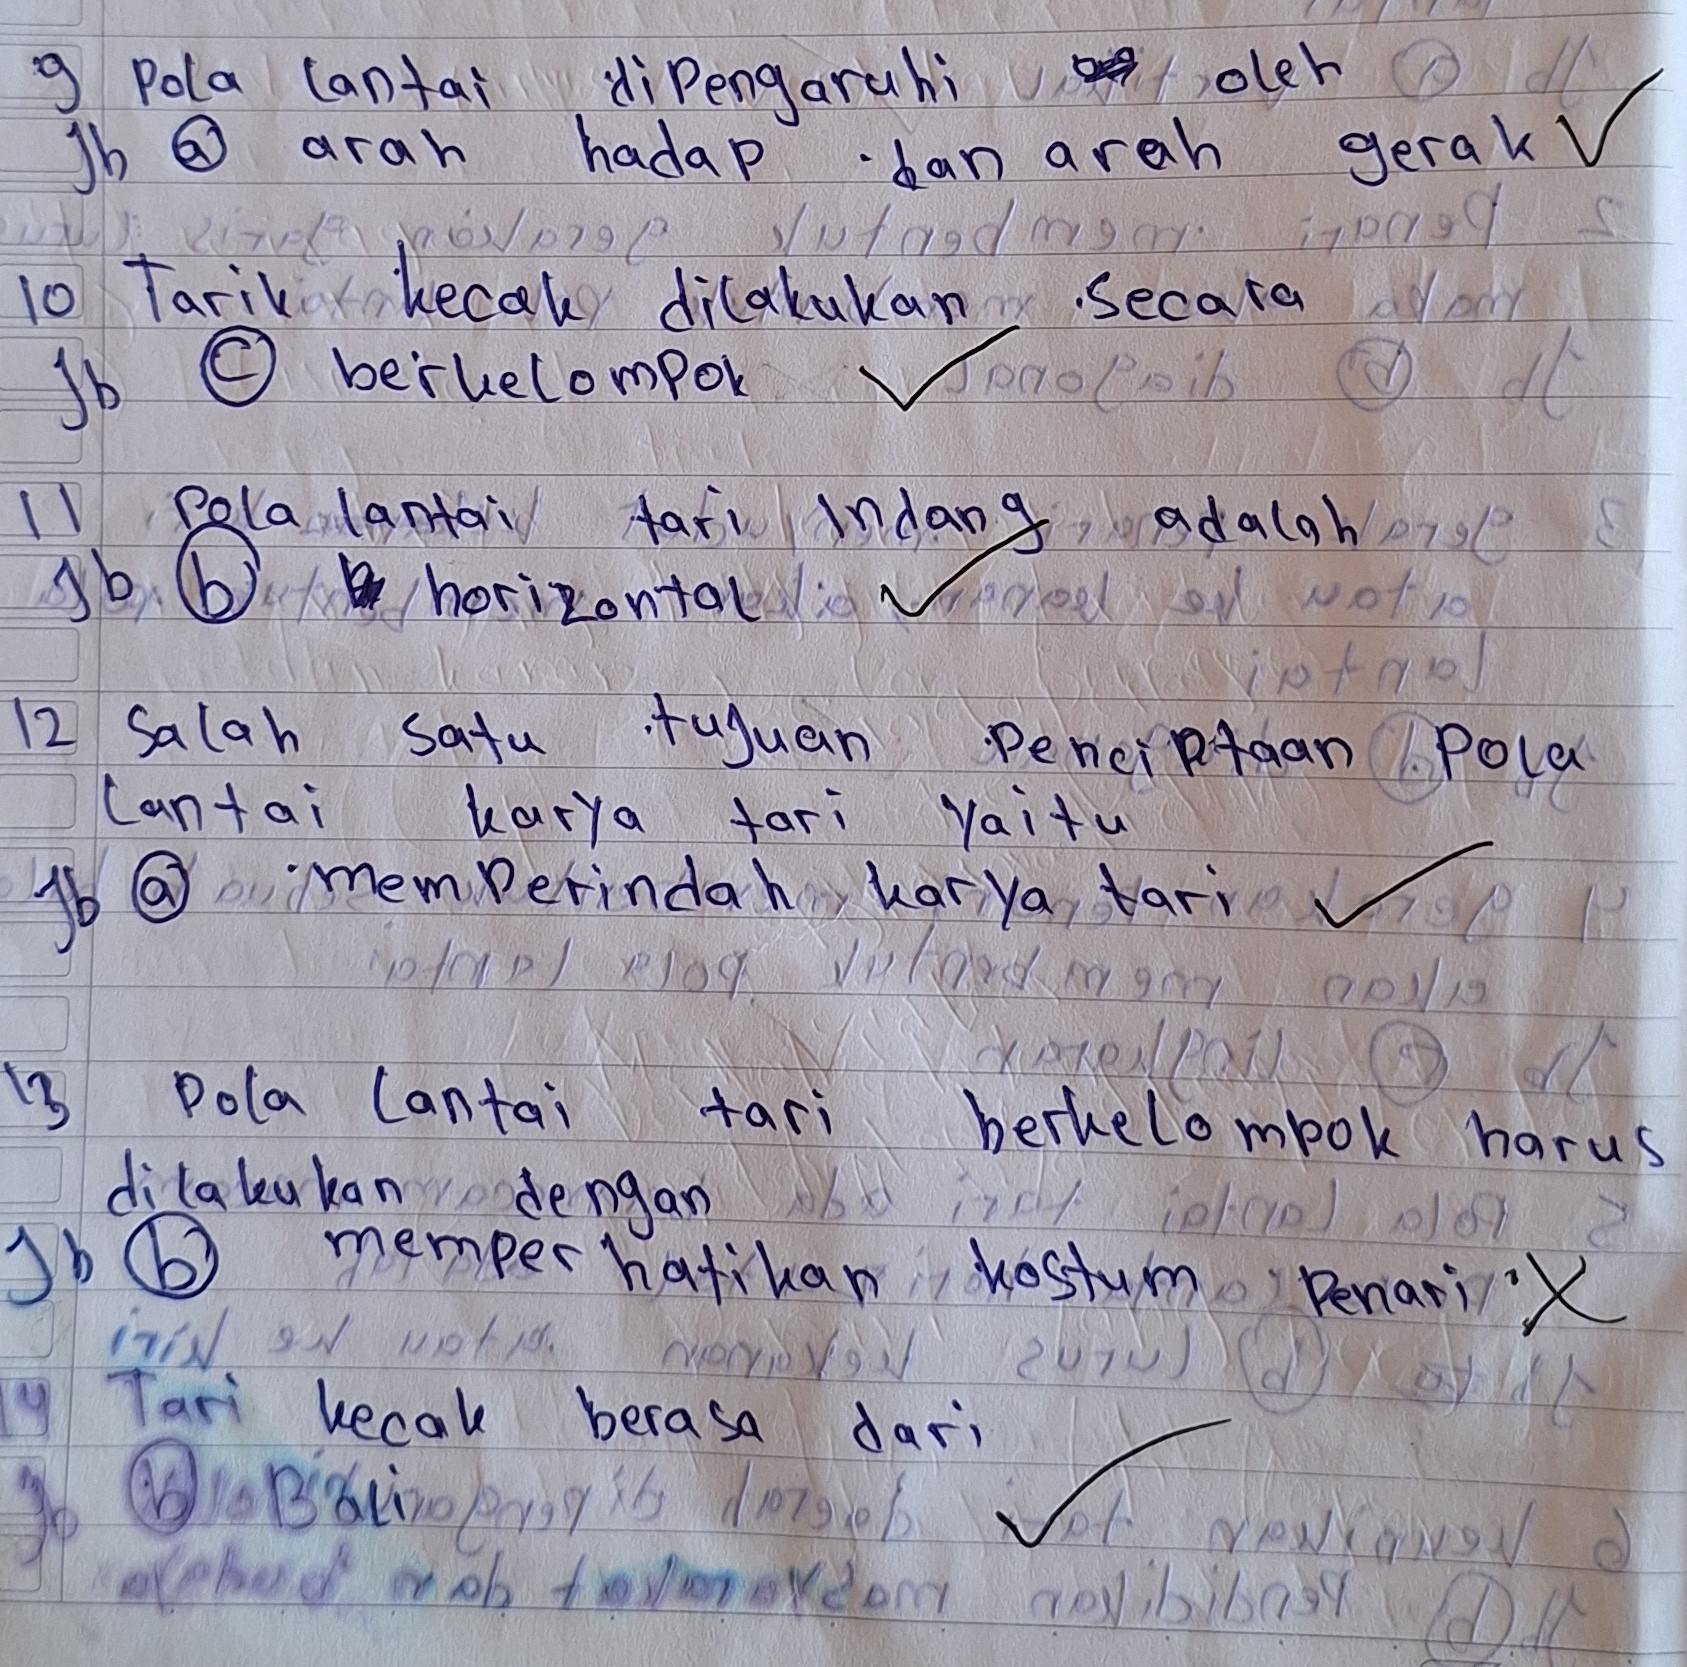 9 Pola lantai dipengaruhi oleh
Jb a arah hadap dan arah gerak
10 Tarik kecak dilakukan secara
Jb c berkelompok
11 Pola lantai tari Indang adalah
Jb b horizontal
12 Salah satu tujuan Penciptaan Pola
lantai karya tari yaitu
Jb a memperindah karya tari
13 Pola lantai tari berkelompok harus
dilakukan dengan
Jb b memperhatikan kostum Penari
14 Tari kecak berasa dari
Jb b Bali